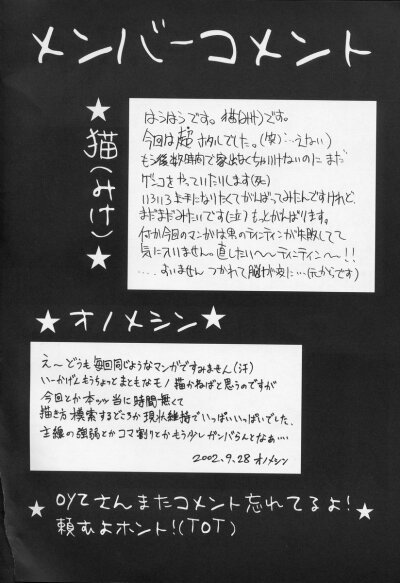 メンバーコメント
★猫(みけ)★
はうはうです。猫(みけ)です。
今回は超ホタルでした。(笑)…えない)
もう後数時間で家出なくちゃいけないのにまだ
ゲンコをやっていたりします(死)
いろいろ上手になりたくてがんばってみたんですけれど、
まだまだみたいです(泣)もっとがんばります。
何か今回のマンガは男のティンティンが失敗してて
気に入りません。直したい〜〜ティンティン〜〜!!
‥‥よいません つかれて脳ミソが変に…(元からです)
★オノメシン★
え〜どうも毎回同じようなマンガですみません(汗)
いーかげんもうちょっとまともなモノ描かねばと思うのですが
今回とか本ッッ当に時間無くて
描き方模索するどころか現状維持でいっぱいいっぱいでした。
主線の強弱とかコマ割りとかもう少しガンバらんとなぁ…
2002.9.28 オノメシン
★OYTさんまたコメント忘れてるよ!
頼むよホント!(TOT)★